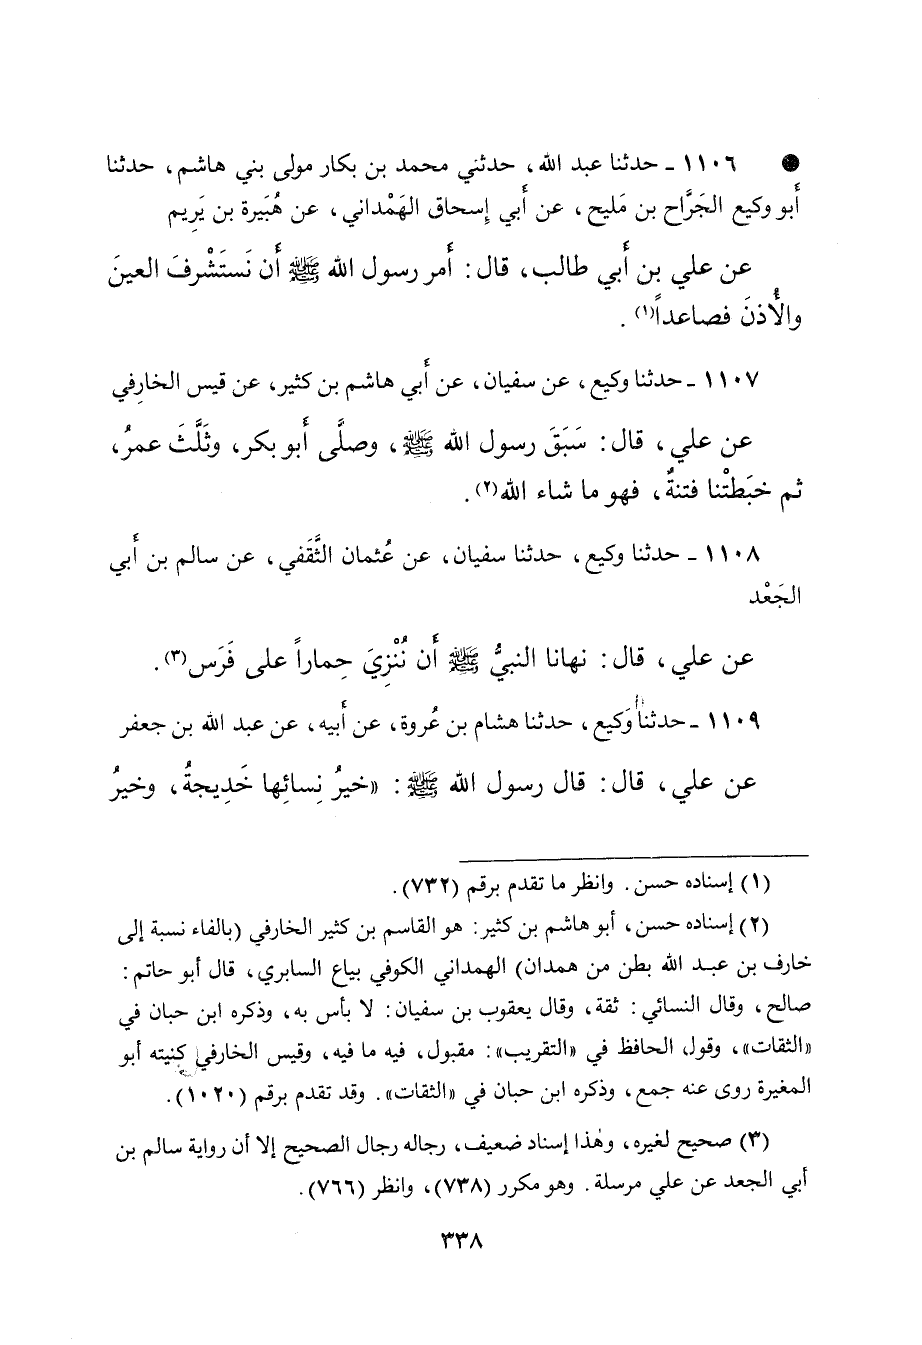 ● ١١٠٦ ـ حدثنا عبد الله، حدثني محمد بن بكار مولى بني هاشم، حدثنا
أَبو وكيع الجَرَّاح بن مَليح، عن أَبي إِسحاق الهَمْداني، عن هُبَيرة بن يَرِيم
عن علي بن أَبي طالب، قال: أَمر رسول الله ﷺ أَن نَستَشْرفَ العينَ
والأُذنَ فصاعداً(١).
١١٠٧ ـ حدثنا وكيع، عن سفيان، عن أَبي هاشم بن كثير، عن قيس الخارِفي
عن علي، قال: سَبَقَ رسول الله ﷺ، وصلَّى أَبو بكر، وثَلَّثَ عمرُ،
ثم خبَطتْنا فتنةٌ، فهو ما شاء الله(٢).
١١٠٨ ـ حدثنا وكيع، حدثنا سفيان، عن عُثمان الثَّقَفي، عن سالم بن أَبي
الجَعْد
عن علي، قال: نهانا النبيُّ ﷺ أَن نُنْزِيَ حِماراً على فَرَس(٣).
١١٠٩ ـ حدثنا وَكيع، حدثنا هشام بن عُروة، عن أَبيه، عن عبد الله بن جعفر
عن علي، قال: قال رسول الله ﷺ: «خيرُ نِسائِها خَدِيجةُ، وخيرُ
(١) إسناده حسن. وانظر ما تقدم برقم (٧٣٢).
(٢) إسناده حسن، أبو هاشم بن كثير: هو القاسم بن كثير الخارفي (بالفاء نسبة إلى
خارف بن عبد الله بطن من همدان) الهمداني الكوفي بياع السابري، قال أبو حاتم:
صالح، وقال النسائي: ثقة، وقال يعقوب بن سفيان: لا بأس به، وذكره ابن حبان في
«الثقات»، وقول الحافظ في «التقريب»: مقبول، فيه ما فيه، وقيس الخارفي كنيته أبو
المغيرة روى عنه جمع، وذكره ابن حبان في «الثقات». وقد تقدم برقم (١٠٢٠).
(٣) صحيح لغيره، وهٰذا إسناد ضعيف، رجاله رجال الصحيح إلا أن رواية سالم بن
أبي الجعد عن علي مرسلة. وهو مكرر (٧٣٨)، وانظر (٧٦٦).
٣٣٨